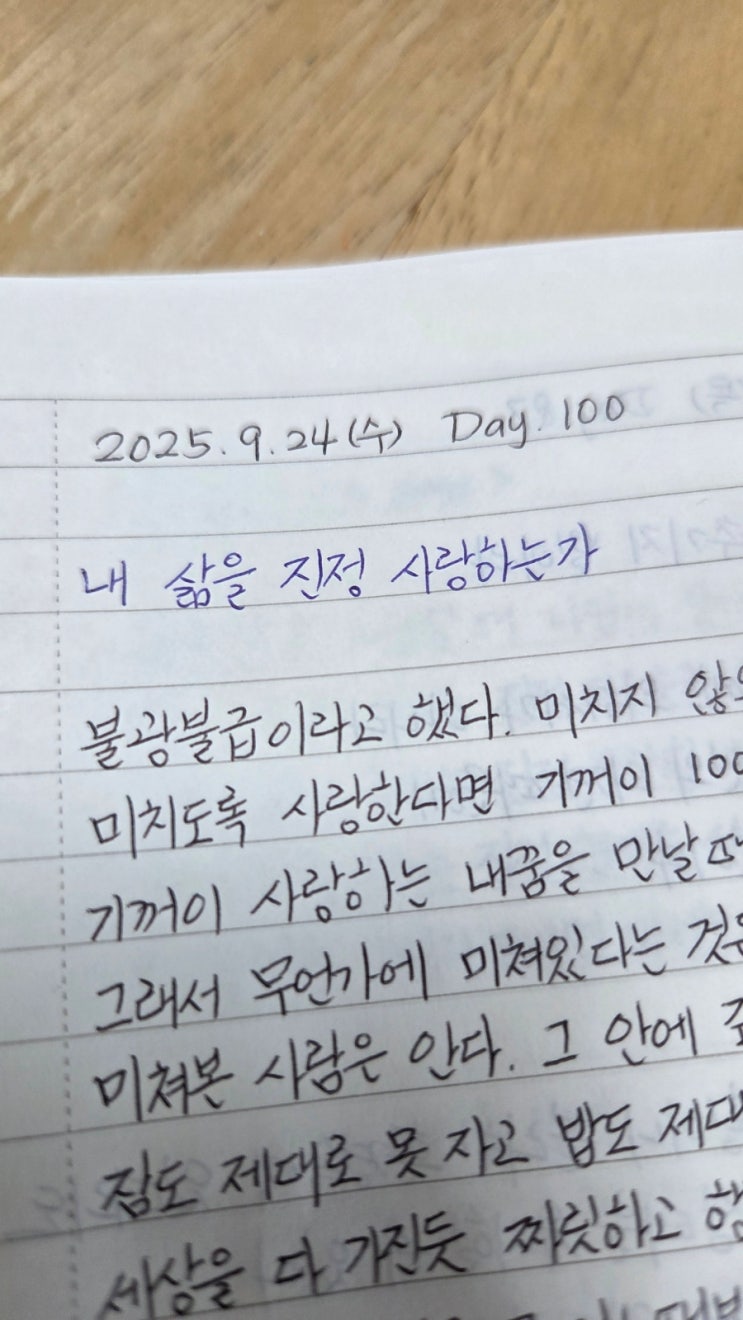 2025.9.24(수) Day.100
내 삶을 진정 사랑하는가
불광불급이라고 했다. 미치지
미치도록 사랑한다면 기꺼이 100
기꺼이 사랑하는 내꿈을 만날
그래서 무언가에 미쳐있다는
미쳐본 사람은 안다. 그 안에
잠도 제대로 못 자고 밥도
세상을 다 가진듯 짜릿하고